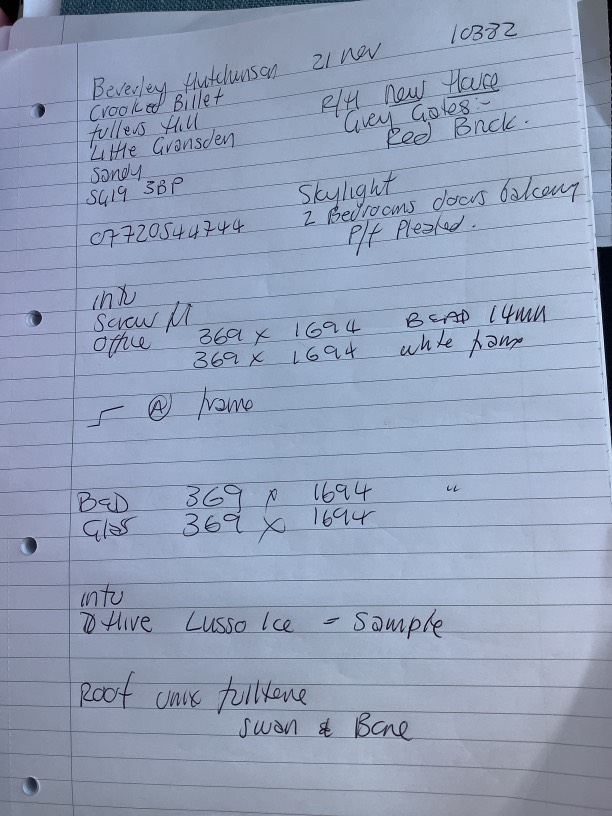 10382
Beverley Hutchinson 21 Nov
Crooked Billet
fullers Hill
Little Gransden
Sandy
SG19 3BP
07720544744
R/H New House
Grey Gates:-
Red Brick.
Skylight
2 Bedrooms doors balcony
P/f Pleated.
intu
Screw
Office 369 x 1694 BEAD 14mm
369 x 1694 white frame
A frame
BED 369 x 1694 "
Glass 369 x 1694
intu
Hive Lusso Ice - Sample
Roof unix
Swan & Bone